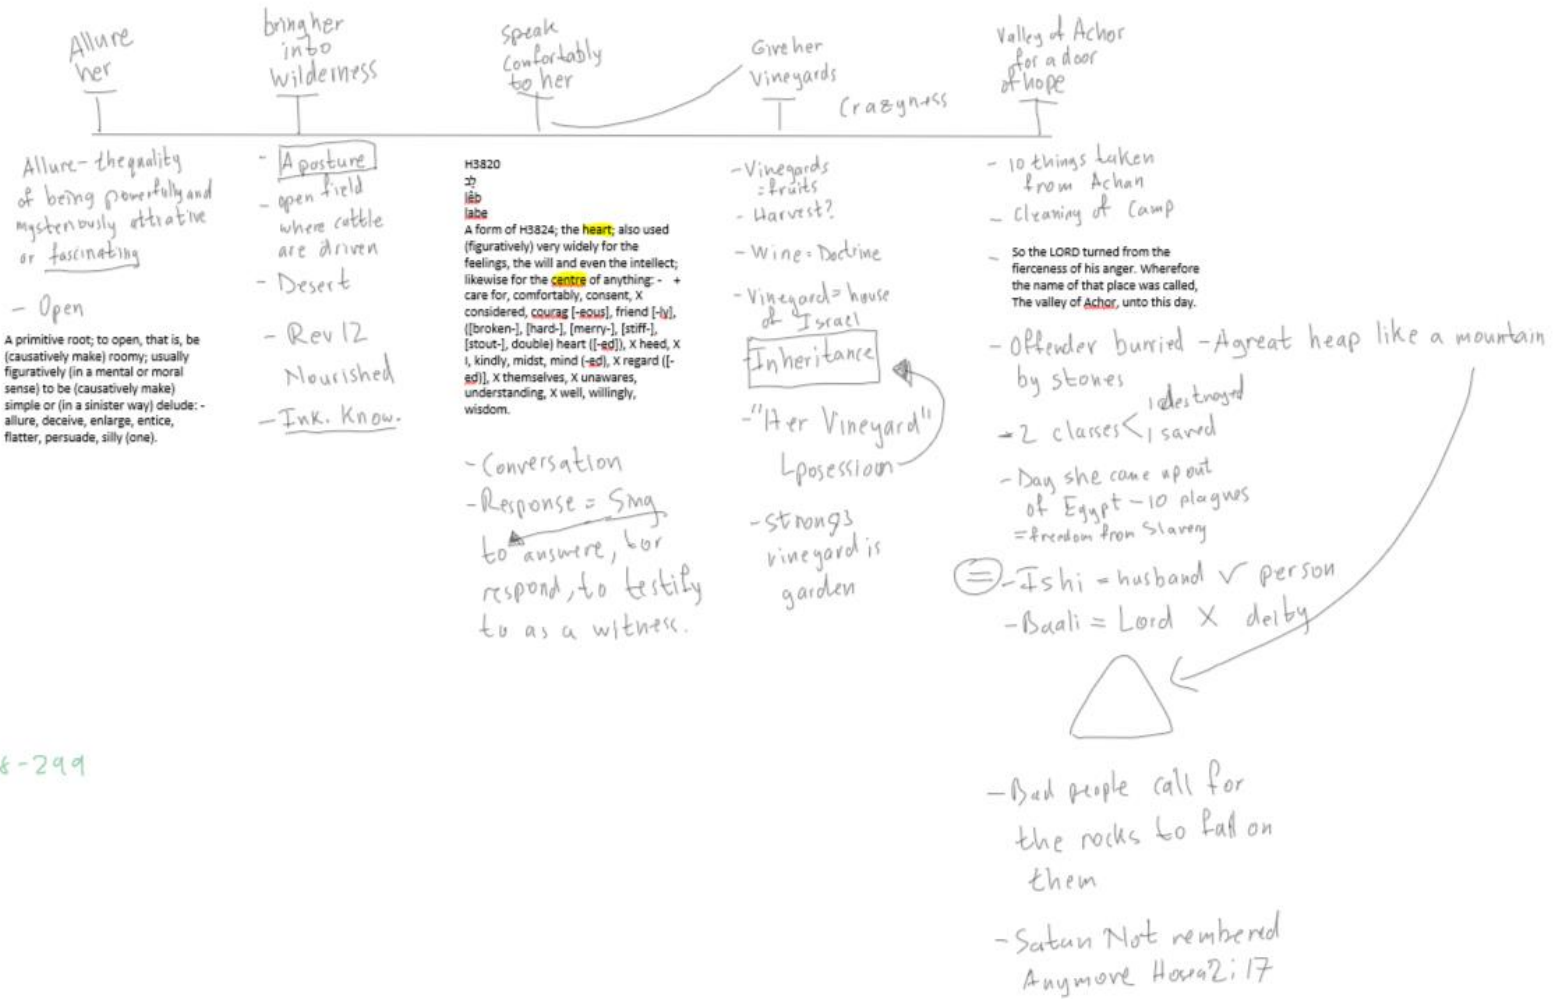 Allure
her
bring her
into
wilderness
speak
comfortably
to her
Give her
Vineyards
Crazyness
Valley of Achor
for a door
of hope
Allure - the quality
of being powerfully and
mysteriously attrative
or fascinating
- Open
A primitive root; to open, that is, be
(causatively make) roomy; usually
figuratively (in a mental or moral
sense) to be (causatively make)
simple or (in a sinister way) delude: -
allure, deceive, enlarge, entice,
flatter, persuade, silly (one).
- A posture
- open field
where cattle
are driven
- Desert
- Rev 12
Nourished
- Ink. Know.
H3820
לֵב
lêb
labe
A form of H3824; the heart; also used
(figuratively) very widely for the
feelings, the will and even the intellect;
likewise for the centre of anything: - +
care for, comfortably, consent, X
considered, courag [-eous], friend [-ly],
([broken-], [hard-], [merry-], [stiff-],
[stout-], double) heart ([-ed]), X heed, X
I, kindly, midst, mind (-ed), X regard ([-
ed)], X themselves, X unawares,
understanding, X well, willingly,
wisdom.
- Conversation
- Response = Sing
to answere, or
respond, to testify
to as a witness.
- Vinegards
= fruits
- Harvest?
- Wine = Doctrine
- Vineyard = house
of Israel
- Inheritance
- "Her Vineyard"
posession
- strongs
vineyard is
garden
- 10 things taken
from Achan
- Cleaning of Camp
- So the LORD turned from the
fierceness of his anger. Wherefore
the name of that place was called,
The valley of Achor, unto this day.
- Offender burried - A great heap like a mountain
by stones
- 2 classes < 1 destroyed
1 saved
- Day she came up out
of Egypt - 10 plagues
= freedom from Slavery
= - Ishi = husband ✓ person
- Baali = Lord X deity
- Bad people call for
the rocks to fall on
them
- Satan Not rembered
Anymore Hosea 2:17
8-299